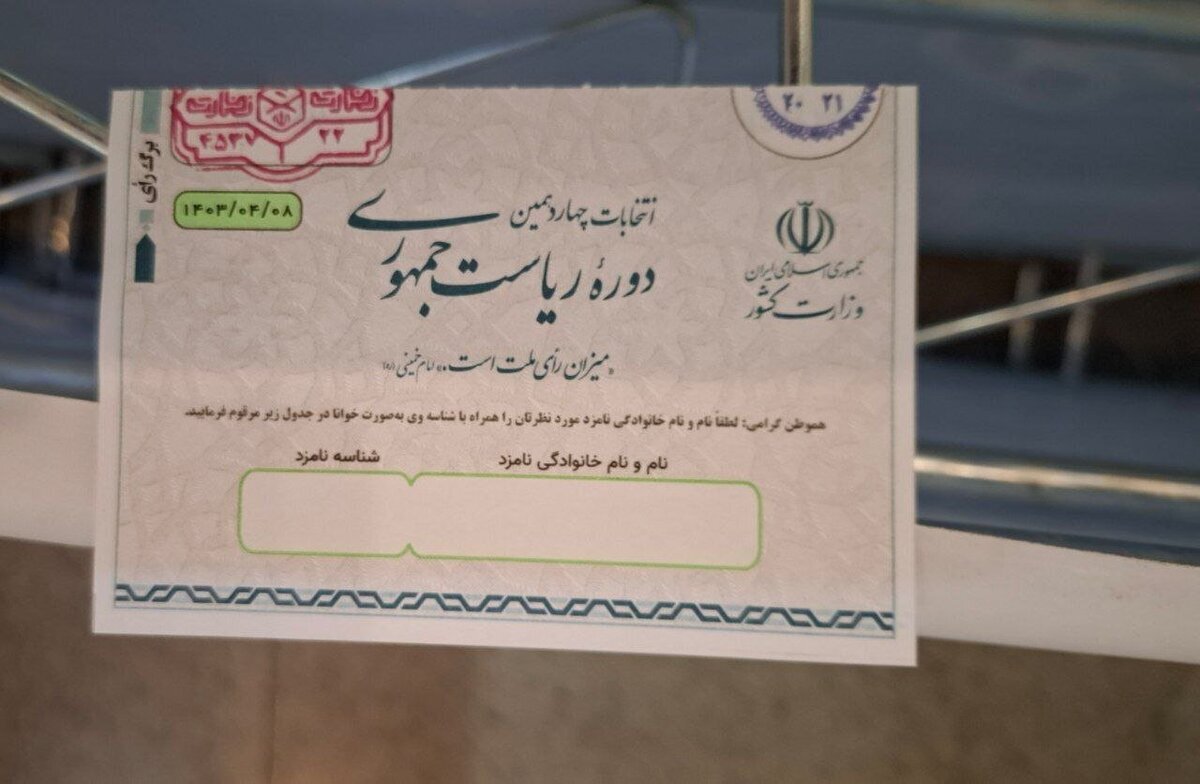 نظارت نظارت
۴۵۳۷ ۲۲
۲۰ ۲۱
برگ رأی
۱۴۰۳/۰۴/۰۸
انتخابات چهاردهمین
دورهٔ ریاست جمهوری
جمهوری اسلامی ایران
وزارت کشور
«میزان رأی ملت است.» امام خمینی (ره)
هموطن گرامی: لطفاً نام و نام خانوادگی نامزد مورد نظرتان را همراه با شناسه وی به‌صورت خوانا در جدول زیر مرقوم فرمایید.
نام و نام خانوادگی نامزد
شناسه نامزد